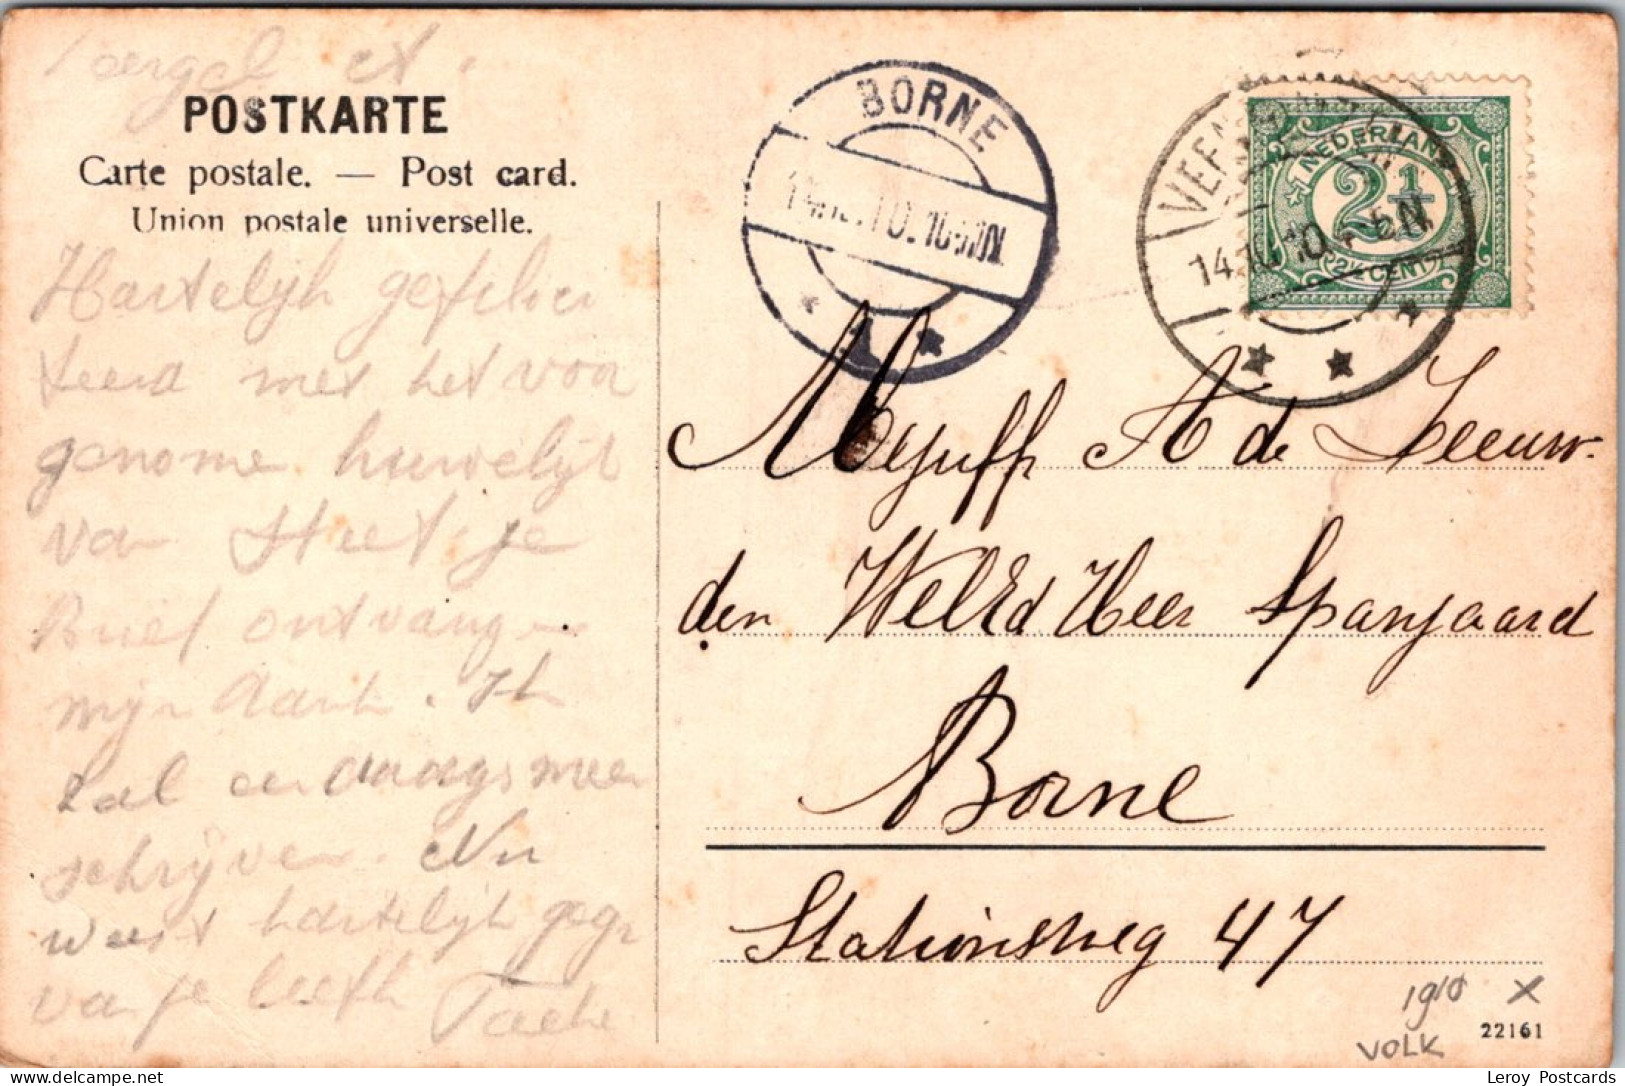 POSTKARTE
Carte postale. — Post card.
Union postale universelle.
Hartelijk gefelici
teerd met het voor
genome huwelijk
van
Brief ontvangen
mijn dank. Ik
zal eerdaags meer
schrijven. Nu
weest hartelijk gegr
van je liefh
BORNE
14. 10.10-11N
1
14.10.10 -5N
NEDERLAND
2½
2½ CENT
Mejuff A de Leeuw.
den WelEd Heer Spanjaard
Borne
Stationsweg 47
1910 X
VOLK 22161
Leroy Postcards